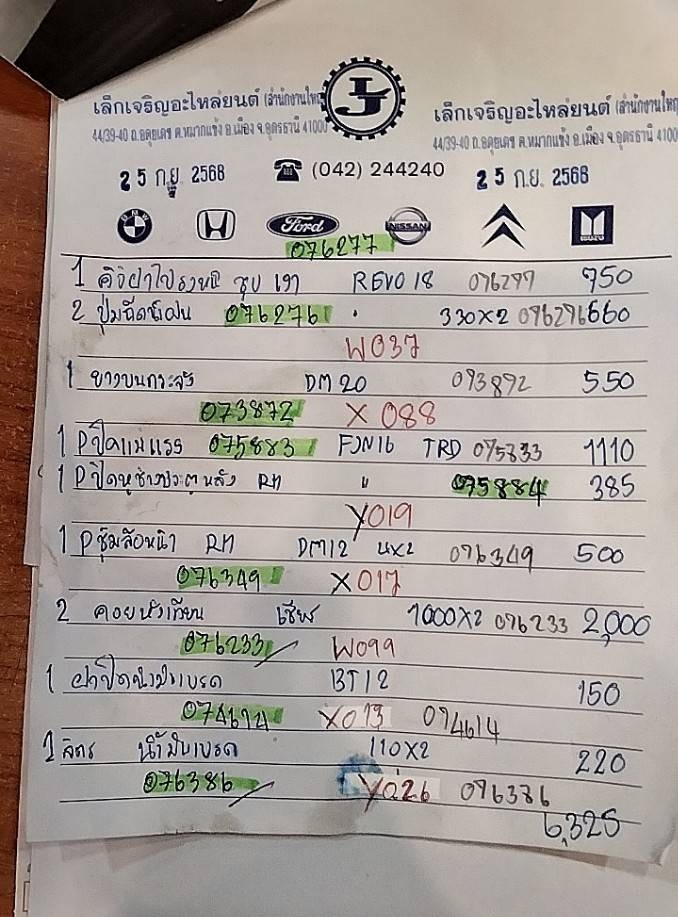 เล็กเจริญอะไหล่ยนต์ (สำนักงานใหญ่
44/39-40 ถ.อดุยเดช ต.หมากแข้ง อ.เมือง จ.อุดรธานี 41000
เล็กเจริญอะไหล่ยนต์ (สำนักงานใหญ่
44/39-40 ถ.อดุยเดช ต.หมากแข้ง อ.เมือง จ.อุดรธานี 4100
LJ
25 ก.ย. 2568
(042) 244240
25 ก.ย. 2568
BMW
Ford
NISSAN
ISUZU
076277
1 ชุบ เงา REVO 18 076277 750
2 ปั๊มฉีดน้ำฝน 076276 330x2 076276 660
W037
1 ยางบนกระจัง DM20 073872 550
073872 X088
1 Pปิดแม่แรง 075883 FJN16 TRD 075883 1110
1 Pปิดหูช้างประตูหลัง RH " 075884 385
Y019
1 Pซุ้มล้อหน้า RH DM12 4x2 076349 500
076349 X017
2 คอยหัวเทียน เซียร์ 1000x2 076233 2,000
076233 W099
1 ฝาปิดน้ำมันเบรค BT12 150
074614 X013 074614
2 ลิตร น้ำมันเบรค 110x2 220
076386 Y026 076386
6,325